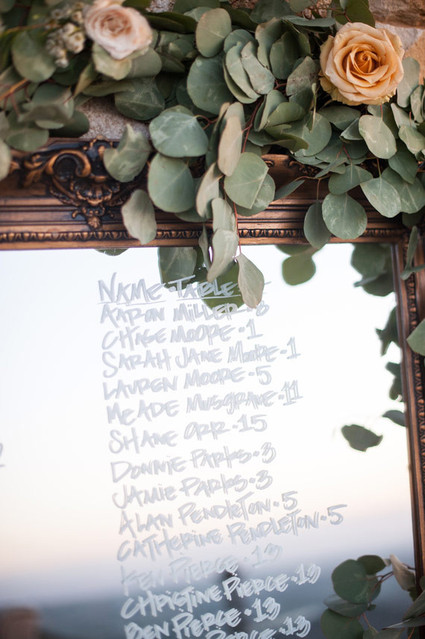 NAME · TABLE
AARON MILLER · 8
CHASE MOORE · 1
SARAH JANE MOORE · 1
LAUREN MOORE · 5
MEADE MUSGRAVE · 11
SHANE ORR · 15
DONNIE PARKS · 3
JAMIE PARKS · 3
ALAN PENDLETON · 5
CATHERINE PENDLETON · 5
KEN PIERCE · 13
CHRISTINE PIERCE · 13
BEN PIERCE · 13
PIERCE · 13